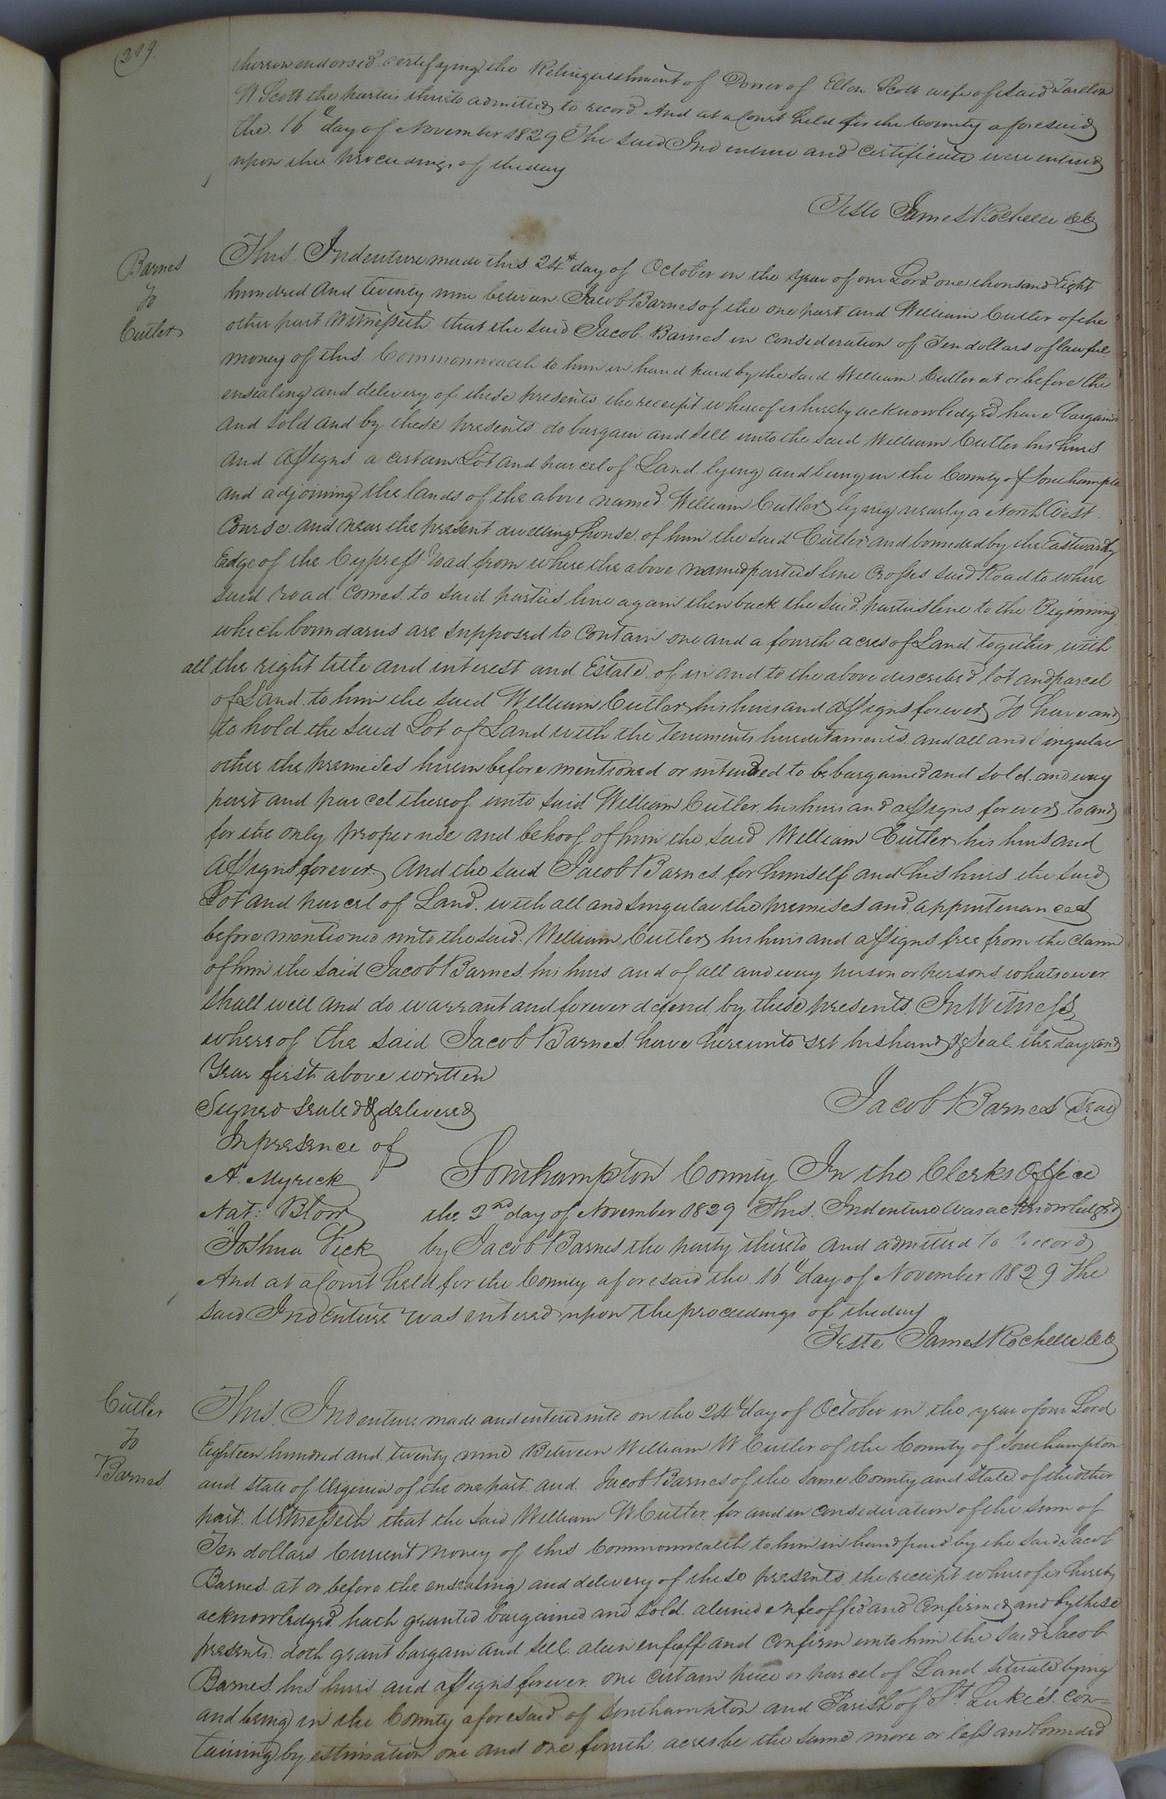 289.
thereon endorsed certifying the Relinquishment of Dower of Ellen Scott wife of said Tarlton
W Scott the parties thereto admitted to record And at a Court held for the County aforesaid
the 16th day of November 1829 The said Indenture and certificate were entered
upon the proceedings of the day
Teste James Rochelle Cl
Barnes
To
Cutler
This Indenture made this 24th day of October in the year of our Lord one thousand Eight
hundred and twenty nine between Jacob Barnes of the one part and William Cutler of the
other part Witnesseth that the said Jacob Barnes in consideration of Ten dollars of lawful
money of this Commonwealth to him in hand paid by the said William Cutler at or before the
ensealing and delivery of these presents the receipt whereof is hereby acknowledged have bargained
and sold and by these presents do bargain and sell unto the said William Cutler his heirs
and assigns a certain Lot and parcel of Land lying and being in the County of Southampton
and adjoining the lands of the above named William Cutler lying nearly a North West
Course and near the present dwelling house of him the said Cutler and bounded by the Eastwardly
Edge of the Cypress road from where the above named parties line Crosses said Road to where
said road comes to said parties line again then back the said parties line to the Beginning
which boundaries are supposed to contain one and a fourth acres of Land together with
all the right title and interest and Estate of in and to the above described lot and parcel
of Land to him the said William Cutler his heirs and assigns forever To have and
to hold the said Lot of Land with the tenements hereditaments and all and singular
other the premises herein before mentioned or intended to be bargained and sold and every
part and parcel thereof unto said William Cutler his heirs and assigns forever to and
for the only proper use and behoof of him the said William Cutler his heirs and
assigns forever. And the said Jacob Barnes for himself and his heirs the said
Lot and parcel of Land with all and singular the premises and appurtenances
before mentioned unto the said William Cutler his heirs and assigns free from the claim
of him the said Jacob Barnes his heirs and of all and every person or persons whatsoever
shall will and do warrant and forever defend by these presents In Witness
whereof the said Jacob Barnes have hereunto set his hand & Seal the day and
Year first above written
Jacob Barnes Seal
Signed sealed & delivered
In presence of
A. Myrick
Nat: Blow
Joshua Vick
Southampton County In the Clerks Office
the 2nd day of November 1829 This Indenture was acknowledged
by Jacob Barnes the party thereto and admitted to record
And at a Court held for the County aforesaid the 16th day of November 1829 The
said Indenture was entered upon the proceedings of the day
Teste James Rochelle Cl
Cutler
To
Barnes
This Indenture made and entered into on the 24th day of October in the year of our Lord
Eighteen hundred and twenty nine Between William W Cutler of the County of Southampton
and State of Virginia of the one part and Jacob Barnes of the same County and State of the other
part Witnesseth that the said William W Cutler for and in consideration of the sum of
Ten dollars Current money of this Commonwealth to him in hand paid by the said Jacob
Barnes at or before the ensealing and delivery of these presents the receipt whereof is hereby
acknowledged hath granted bargained and sold aliened enfeoffed and confirmed and by these
presents doth grant bargain and sell alien enfeoff and confirm unto him the said Jacob
Barnes his heirs and assigns forever one certain piece or parcel of Land situate lying
and being in the County aforesaid of Southampton and Parish of St Lukes con=
taining by estimation one and one fourth acres be the same more or less and bounded